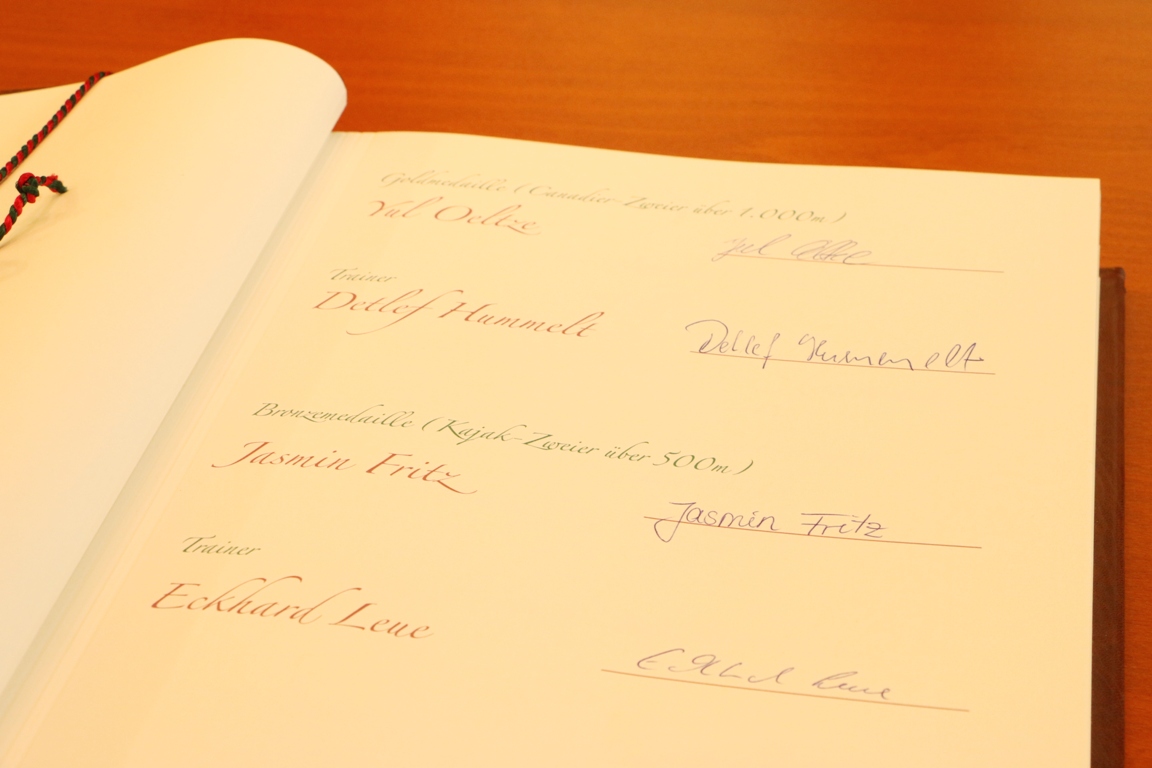 Goldmedaille (Canadier-Zweier über 1.000m)
Yul Oeltze
Yul Oeltze
Trainer
Detlef Hummelt
Detlef Hummelt
Bronzemedaille (Kajak-Zweier über 500m)
Jasmin Fritz
Jasmin Fritz
Trainer
Eckhard Leue
Eckhard Leue